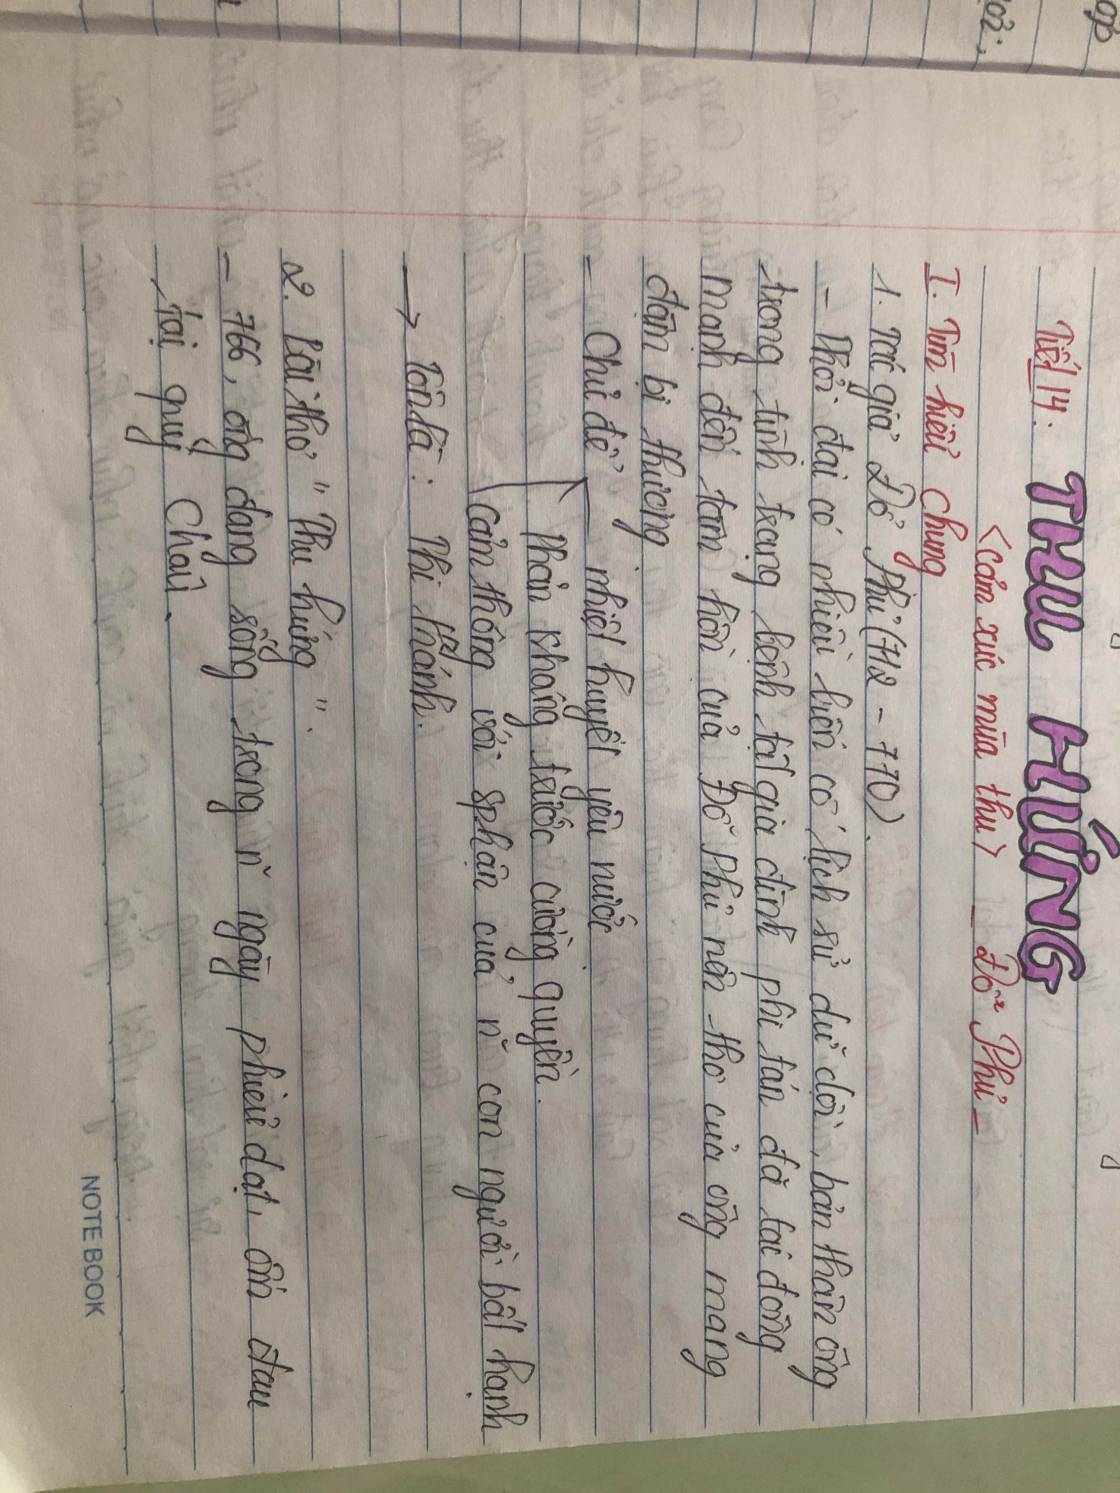 Tiết 14: THU HỨNG
<Cảm xúc mùa thu> _ Đỗ Phủ _
I. Tìm hiểu chung
1. Tác giả Đỗ Phủ (712 - 770).
- Thời đại có nhiều biến cố lịch sử dữ dội, bản thân ông
trong tình trạng bệnh tật gia đình phi tán đã tai động
mạnh đến tâm hồn của Đỗ Phủ nên thơ của ông mang
đậm bi thương
- Chủ đề nhiệt huyết yêu nước
Phản kháng trước cường quyền.
Cảm thông với sphận của n~ con người bất hạnh
→ Tôn là: Thi thánh.
2. Bài thơ "Thu hứng".
- 766, ông đang sống trong n~ ngày phiêu dạt, ốm đau
tại quỳ Châu.
NOTE BOOK